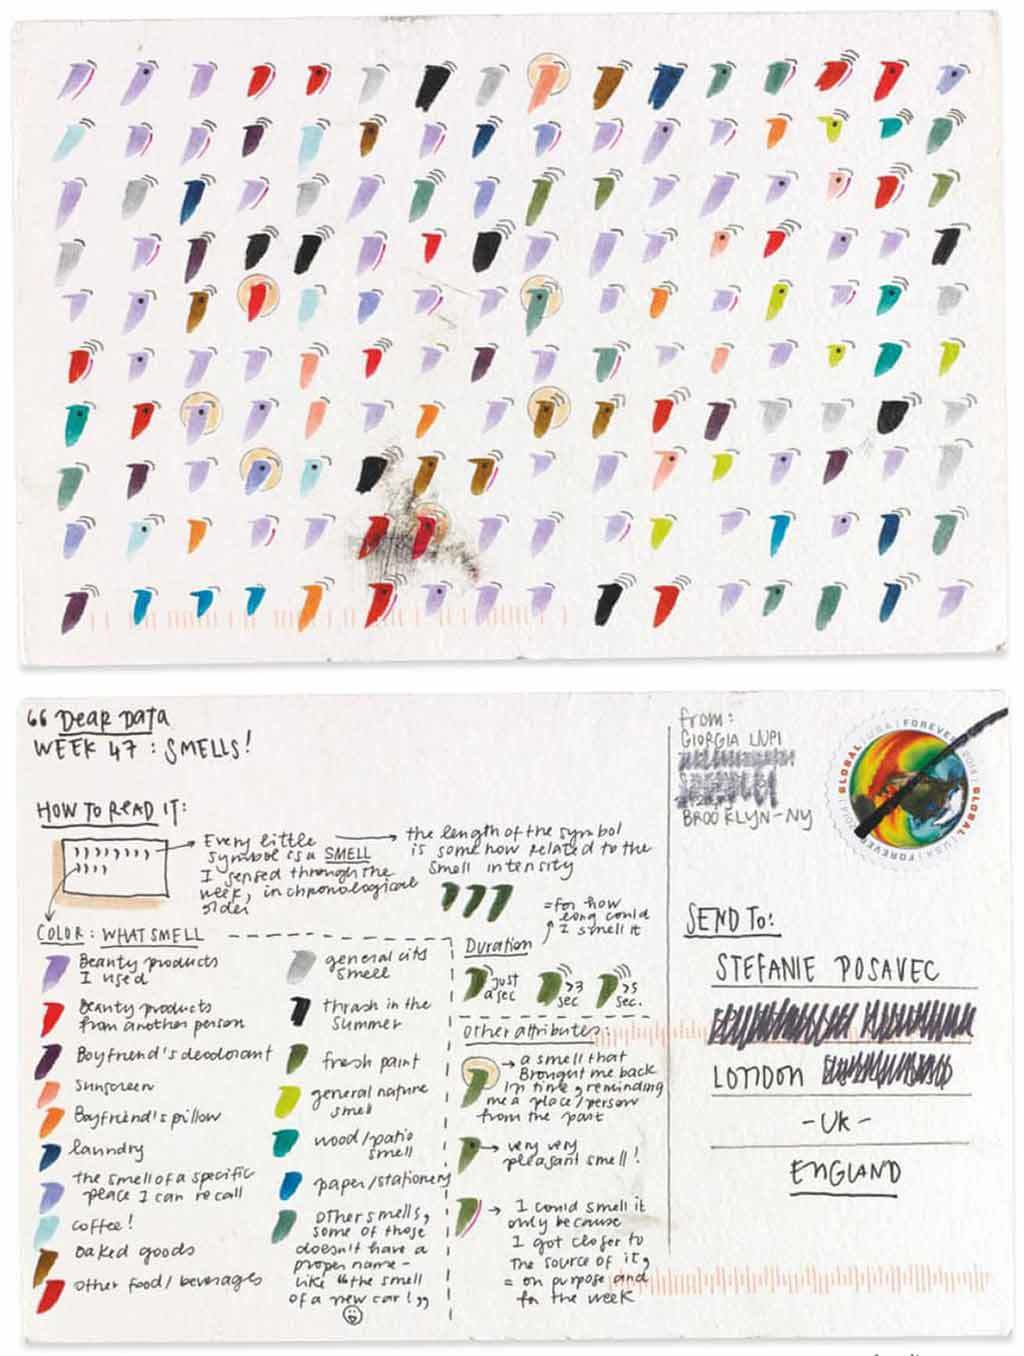 “ Dear Data
WEEK 47 : SMELLS!
HOW TO READ IT:
Every little
symbol is a SMELL
I sensed through the
week, in chronological
order
the length of the symbol
is somehow related to the
smell intensity
COLOR: WHAT SMELL
Beauty products
I used
Beauty products
from another person
Boyfriend's deodorant
Sunscreen
Boyfriend's pillow
laundry
the smell of a specific
place I can recall
coffee!
baked goods
other food/beverages
general city
smell
thrash in the
summer
fresh paint
general nature
smell
wood/patio
smell
paper/stationery
other smells,
some of those
doesn't have a
proper name -
like "the smell
of a new car!"
Duration
=for how
long could
I smell it
just
a sec
>3
sec
>5
sec.
Other attributes:
→ a smell that
Brought me back
in time, reminding
me a place/person
from the past
→ very very
pleasant smell!
→ I could smell it
only because
I got closer to
the source of it,
= on purpose and
for the week
from:
GIORGIA LUPI
BROOKLYN-NY
GLOBAL | USA | FOREVER 2014
SEND TO:
STEFANIE POSAVEC
LONDON
- UK -
ENGLAND